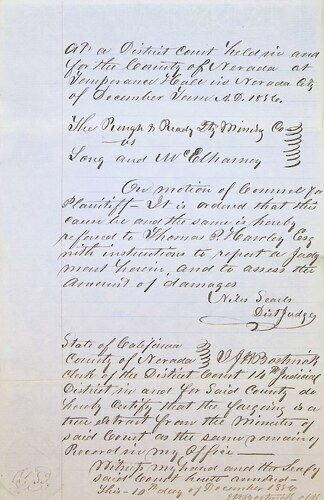 At a District Court held in and
for the County of Nevada at
Temperance Hall in Nevada City
of December Term A.D. 1856.
The Rough & Ready Mining Co
vs
Long and McElhaney
On motion of Counsel for
Plaintiff It is ordered that this
cause be and the same is hereby
refered to Thomas P. Hawley Esq
with instructions to report a Judg
ment herein, and to assess the
amount of damages
Niles Searls
Dist Judge
State of California
County of Nevada
clerk of the District Court 14th Judicial
District in and for Said County do
hereby Certify that the foregoing is a
true extract from the Minutes of
said Court as the same remain of
Record in my Office
Witness my hand and the Seal of
said Court
this day of December 1856